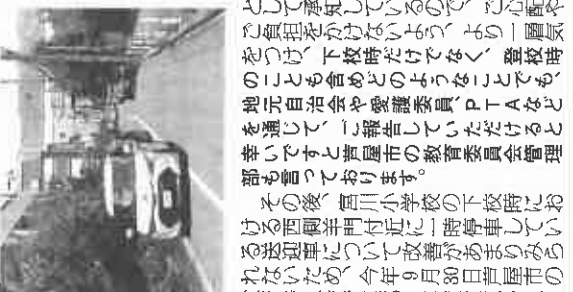 として承知しているので、ご心配や
ご負担をかけないよう、より一層気
をつけ、下校時だけでなく、登校時
のことも含めどのようなことでも、
地元自治会や愛護委員、PTAなど
を通じて、ご報告していただけると
幸いですと芦屋市の教育委員会管理
部も言っております。
その後、宮川小学校の下校時にお
ける西側半門付近に一時停車してい
る送迎車について改善があまりみら
れないため、今年9月30日芦屋市の